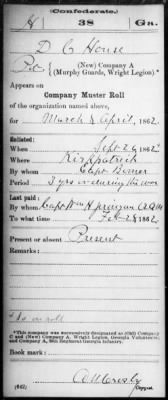 (Confederate.)
H 38 Ga.
D C House
Pvt, (New) Company A
(Murphy Guards, Wright Legion).*
Appears on
Company Muster Roll
of the organization named above,
for March & April, 1862.
Enlisted:
When Sept 26, 1862
Where Kirkpatrick
By whom Capt
Period 3 yrs or during the war
Last paid:
By whom Capt Wm H
To what time Feb 28, 1862.
Present or absent Present
Remarks:
*This company was successively designated as (Old) Company
C and (New) Company A, Wright Legion, Georgia Volunteers,
and Company A, 38th Regiment Georgia Infantry.
Book mark:
(642)
Copyist.